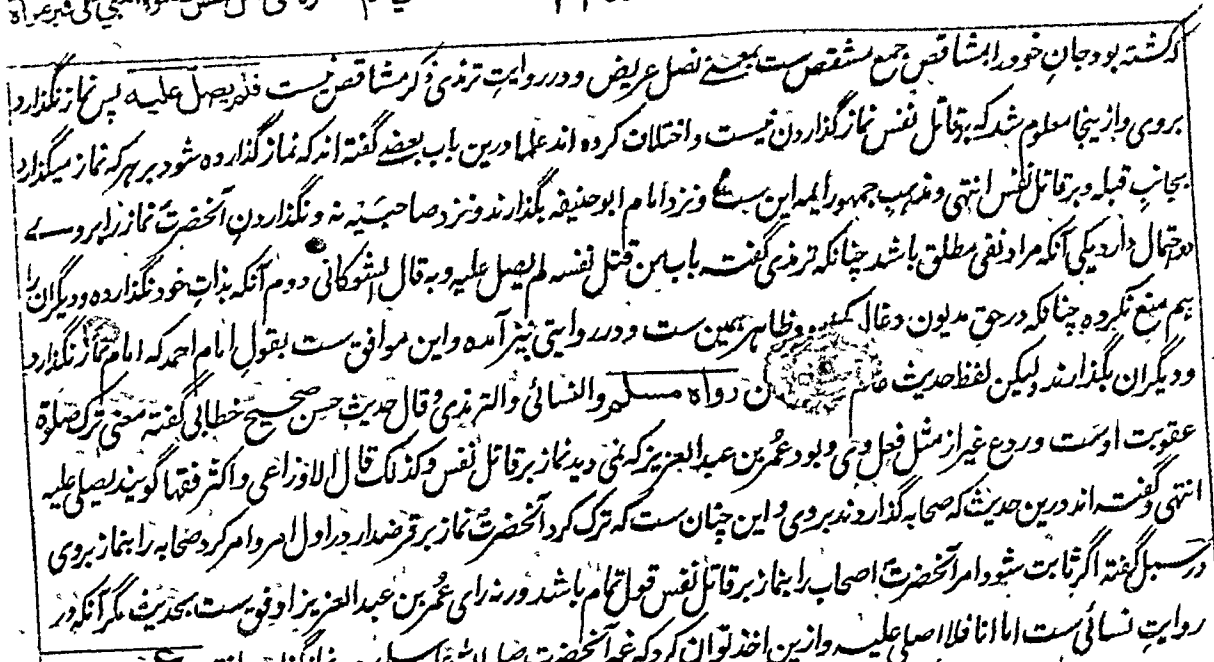 که کشته بود جان خود را بمشاقص جمع مشقص ست بمعنے نصل عریض و در روایت ترمذی ذکر مشاقص نیست فلم یصل علیه پس نماز نگذارد
بروی و ازینجا معلوم شد که بر قاتل نفس نماز گذاردن نیست و اختلاف کرده اند علما درین باب بعضے گفته اند که نماز گذارده شود بر هر که نماز میگذارد
بجانب قبله و بر قاتل نفس انتهی و مذهب جمهور ایمه این ست و نزد امام ابو حنیفه بگذارند و نزد صاحبیه نه و نگذاردن آنحضرت نماز را بروے
دو احتمال دارد یکی آنکه مراد نفی مطلق باشد چنانکه ترمذی گفته باب من قتل نفسه لم یصل علیه و به قال الشوکانی دوم آنکه بذات خود نگذارده و دیگران را
هم منع نکرده چنانکه در حق مدیون و غال و ظاهر همین ست و در روایتی نیز آمده و این موافق ست بقول امام احمد که امام نماز نگذارد
و دیگران بگذارند و لیکن لفظ حدیث رواه مسلم والنسائی والترمذی و قال حدیث حسن صحیح خطابی گفته معنی ترک صلاة
عقوبت اوست و ردع غیر از مثل فعل وی و بود عمر بن عبد العزیز که نمی دید نماز بر قاتل نفس و کذلک قال الاوزاعی و اکثر فقها گویند یصلی علیه
انتهی و گفته اند درین حدیث که صحابه گذاردند بروی و این چنان ست که ترک کرد آنحضرت نماز بر قرضدار در اول امر و امر کرد صحابه را بنماز بروی
در سبل گفته اگر ثابت شود امر آنحضرت اصحاب را بنماز بر قاتل نفس قول تمام باشد ورنه رای عمر بن عبد العزیز اوفق ست بحدیث مگر آنکه در
روایت نسائی ست اما انا فلا اصلی علیه و ازین اخذ توان کرد که غیر آنحضرت